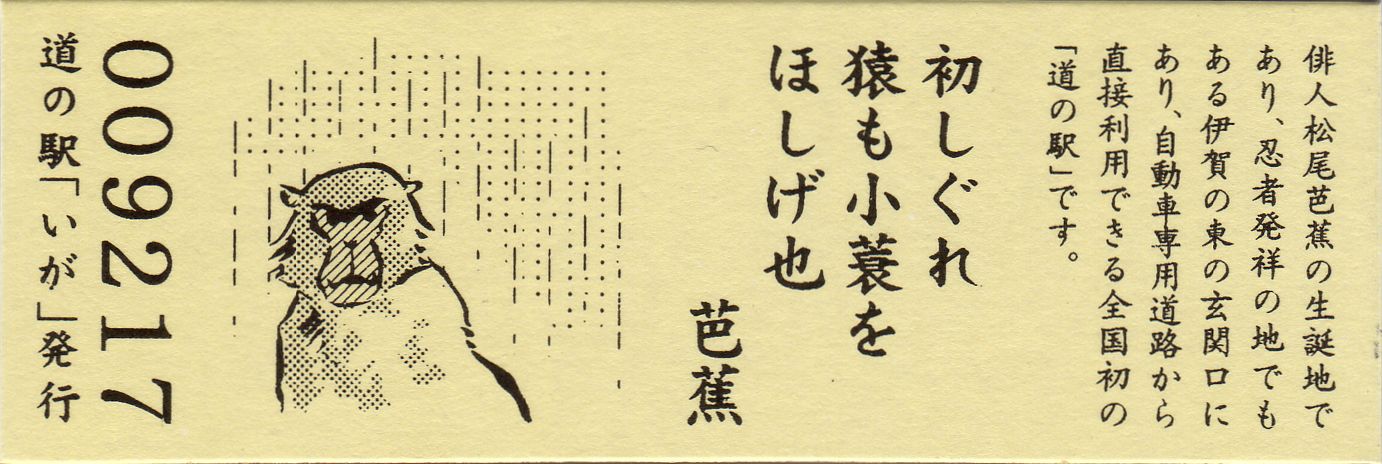 俳人松尾芭蕉の生誕地で
あり、忍者発祥の地でも
ある伊賀の東の玄関口に
あり、自動車専用道路から
直接利用できる全国初の
「道の駅」です。
初しぐれ
猿も小蓑を
ほしげ也
芭蕉
009217
道の駅「いが」発行